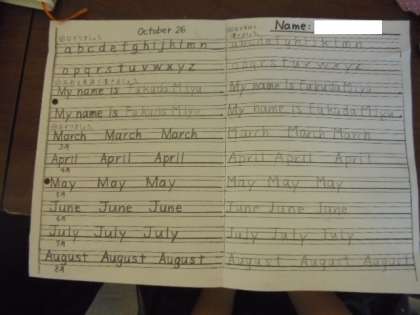 October 26 Name:
a b c d e f g h i j k l m n a b c d e f g h i j k l m n
o p q r s t u v w x y z o p q r s t u v w x y z
My name is Fukuda Miyu. My name is Fukuda Miyu.
My name is Fukuda Miyu. My name is Fukuda Miyu.
March March March March March March
3月
April April April April April April
4月
May May May May May May
5月
June June June June June June
6月
July July July July July July
7月
August August August August August August
8月